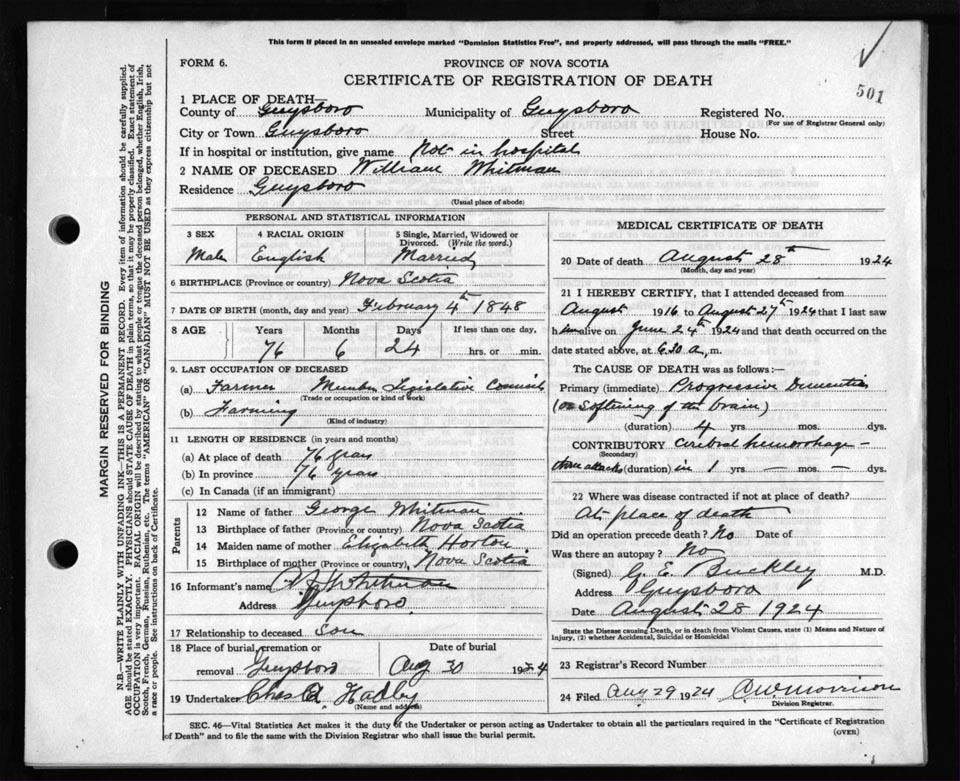 This form if placed in an unsealed envelope marked "Dominion Statistics Free", and properly addressed, will pass through the mails "FREE."
FORM 6.
PROVINCE OF NOVA SCOTIA
CERTIFICATE OF REGISTRATION OF DEATH
501
1 PLACE OF DEATH—
County of Guysboro Municipality of Guysboro Registered No.
(For use of Registrar General only)
City or Town Guysboro Street House No.
If in hospital or institution, give name Not in hospital
2 NAME OF DECEASED William Whitman
Residence Guysboro
(Usual place of abode)
PERSONAL AND STATISTICAL INFORMATION
3 SEX 4 RACIAL ORIGIN 5 Single, Married, Widowed or Divorced. (Write the word.)
Male English Married
6 BIRTHPLACE (Province or country) Nova Scotia
7 DATE OF BIRTH (month, day and year) February 4th 1848
8 AGE Years Months Days If less than one day,
76 6 24 hrs. or min.
9. LAST OCCUPATION OF DECEASED
(a) Farmer Member Legislative Council
(Trade or occupation or kind of work)
(b) Farming
(Kind of industry)
11 LENGTH OF RESIDENCE (in years and months)
(a) At place of death 76 years
(b) In province 76 years
(c) In Canada (if an immigrant)
Parents
12 Name of father George Whitman
13 Birthplace of father (Province or country) Nova Scotia
14 Maiden name of mother Elizabeth Horton
15 Birthplace of mother (Province or country) Nova Scotia
16 Informant's name Whitman
Address Guysboro.
17 Relationship to deceased Son
18 Place of burial, cremation or Date of burial
removal Guysboro Aug 30 1924
19 Undertaker Chas A. Hadley
(Name and address)
MEDICAL CERTIFICATE OF DEATH
20 Date of death August 28th 1924
(Month, day and year)
21 I HEREBY CERTIFY, that I attended deceased from
August 1916 to August 27th 1924 that I last saw
him alive on June 24th 1924 and that death occurred on
date stated above, at 6.30 a, m.
The CAUSE OF DEATH was as follows:—
Primary (immediate) Progressive Dementia
(or Softening of the brain)
(duration) 4 yrs mos. dys.
CONTRIBUTORY Cerebral hemorrhage –
(Secondary)
three attacks (duration) in 1 yrs – mos. – dys.
22 Where was disease contracted if not at place of death?
At place of death
Did an operation precede death? No Date of
Was there an autopsy? No
(Signed) G. E. Buckley M.D.
Address Guysboro
Date August 28 1924
State the Disease causing Death, or in death from Violent Causes, state (1) Means and Nature of
Injury, (2) whether Accidental, Suicidal or Homicidal
23 Registrar's Record Number
24 Filed Aug 29 1924 C W Morrison
Division Registrar.
SEC. 46—Vital Statistics Act makes it the duty of the Undertaker or person acting as Undertaker to obtain all the particulars required in the "Certificate of Registration
of Death" and to file the same with the Division Registrar who shall issue the burial permit.
(OVER)
MARGIN RESERVED FOR BINDING
N.B.—WRITE PLAINLY WITH UNFADING INK—THIS IS A PERMANENT RECORD. Every item of information should be carefully supplied.
AGE should be stated EXACTLY. PHYSICIANS should STATE CAUSE OF DEATH in plain terms, so that it may be properly classified. Exact statement of
OCCUPATION is very important. RACIAL ORIGIN will be described by stating to what people or tongue the deceased person belonged, whether English, Irish,
Scotch, French, German, Russian, Ruthenian, etc. The terms "AMERICAN" OR "CANADIAN" MUST NOT BE USED as they express citizenship but not
a race or people. See instructions on back of Certificate.